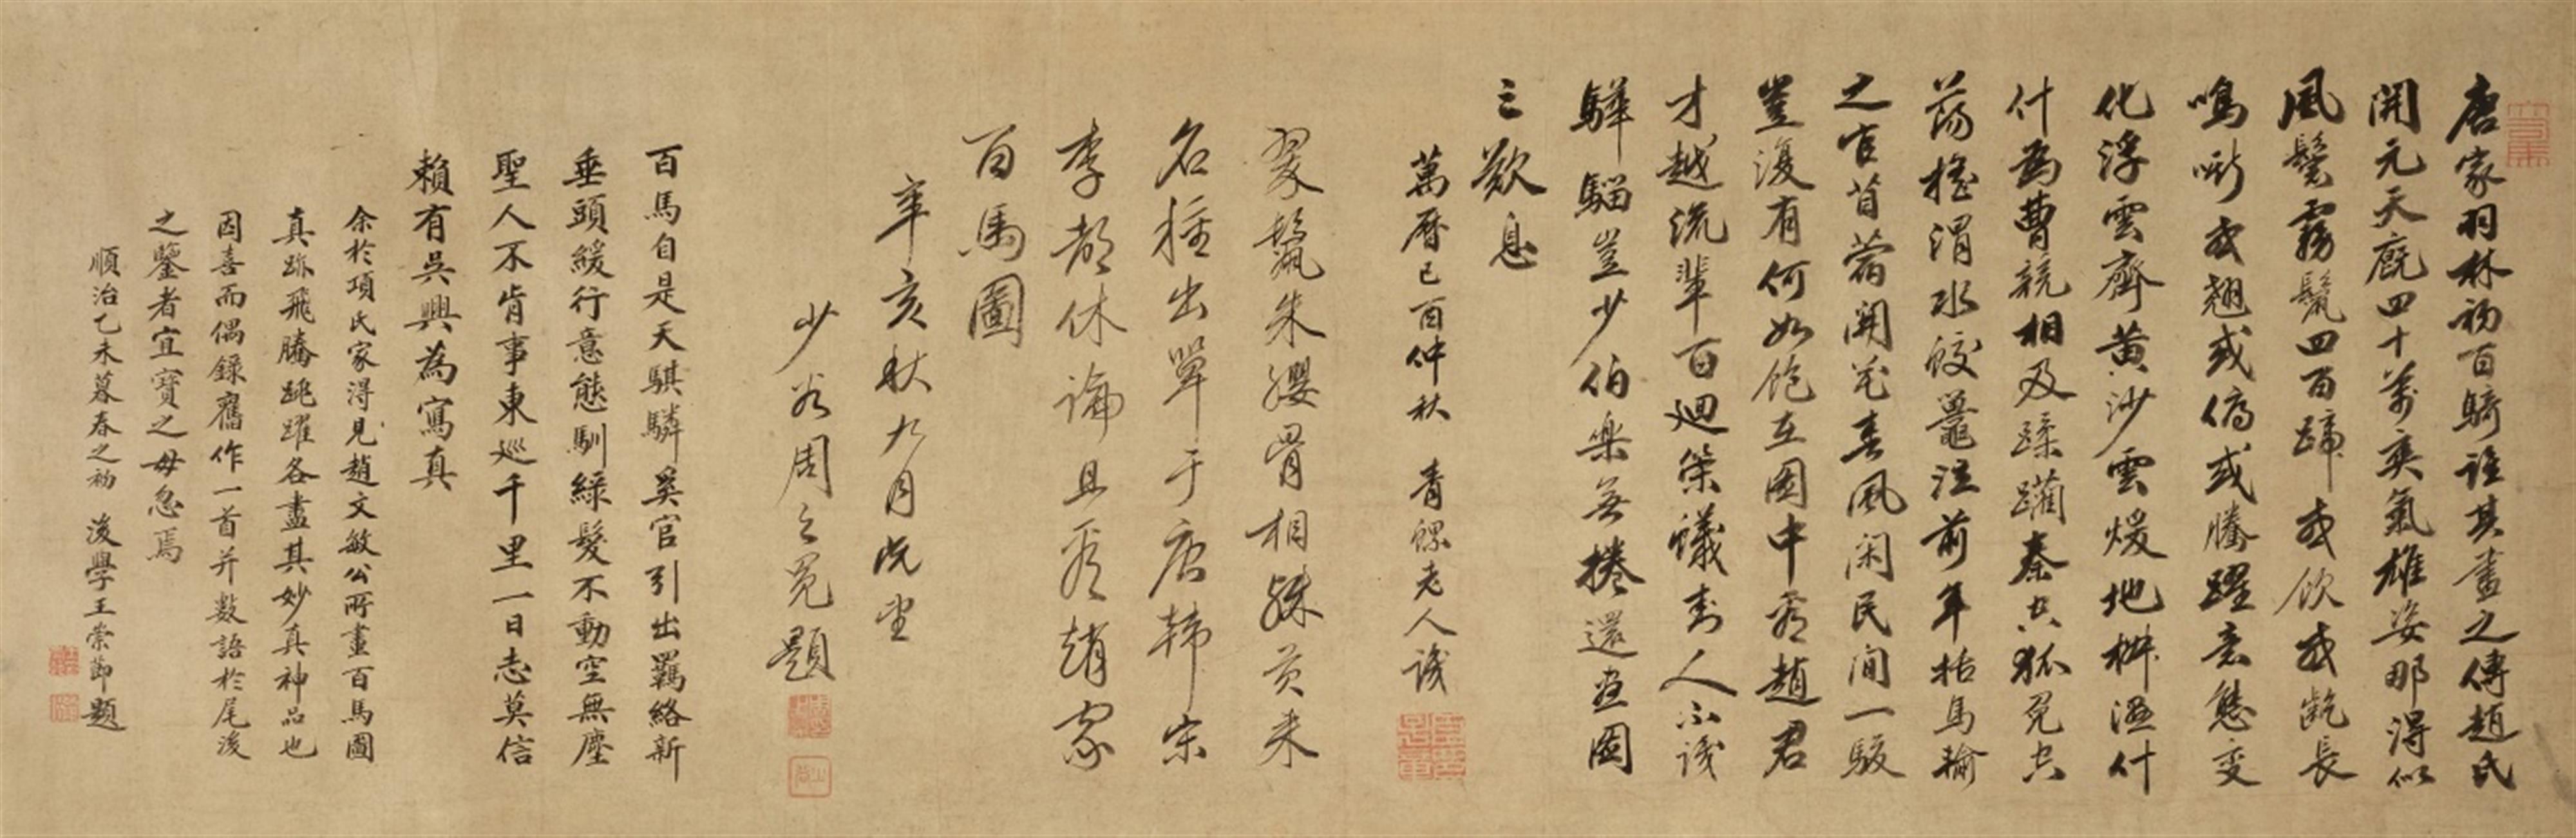 唐家羽林初百騎誰其畫之傳趙氏
開元天廐四十萬奕氣雄姿那得似
風鬉霧鬣四百蹄或飲或齕長
鳴嘶或翹或俯或騰躍意態變
化浮雲齊黄沙雲煖地椒濕什
什為曹競相及蹂躪秦空狐兔空
蕩搖渭水蛟鼉泣前年括馬輸
之官苜蓿開花春風閑民間一駿
豈復有何如飽在圖中看趙君
才越流輩百迴築蟻封人不識
驊騮豈少伯樂無捲還畫圖
三歎息
萬曆己酉仲秋 青螺老人識
翠鬣朱纓骨相殊貢來
名種出單于唐韓宋
李都休論且看趙家
百馬圖
辛亥秋九月既望
少谷周之冕題
百馬自是天騏驎奚官引出羈絡新
垂頭緩行意態馴綠髮不動空無塵
聖人不肯事東巡千里一日志莫信
賴有吳興為寫真
余於項氏家得見趙文敏公所畫百馬圖
真跡飛騰跳躍各盡其妙真神品也
因喜而偶錄舊作一首并數語於尾後
之鑒者宜寶之毋忽焉
順治乙未暮春之初 後學王崇節題